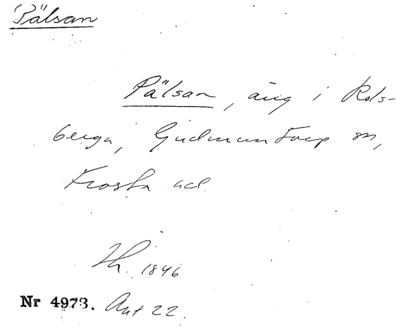 Pälsan
Pälsan, äng i Rols-
berga, Gudmuntorp sn,
Frosta hd
Lh. 1846
Nr 4973. Ant 22.